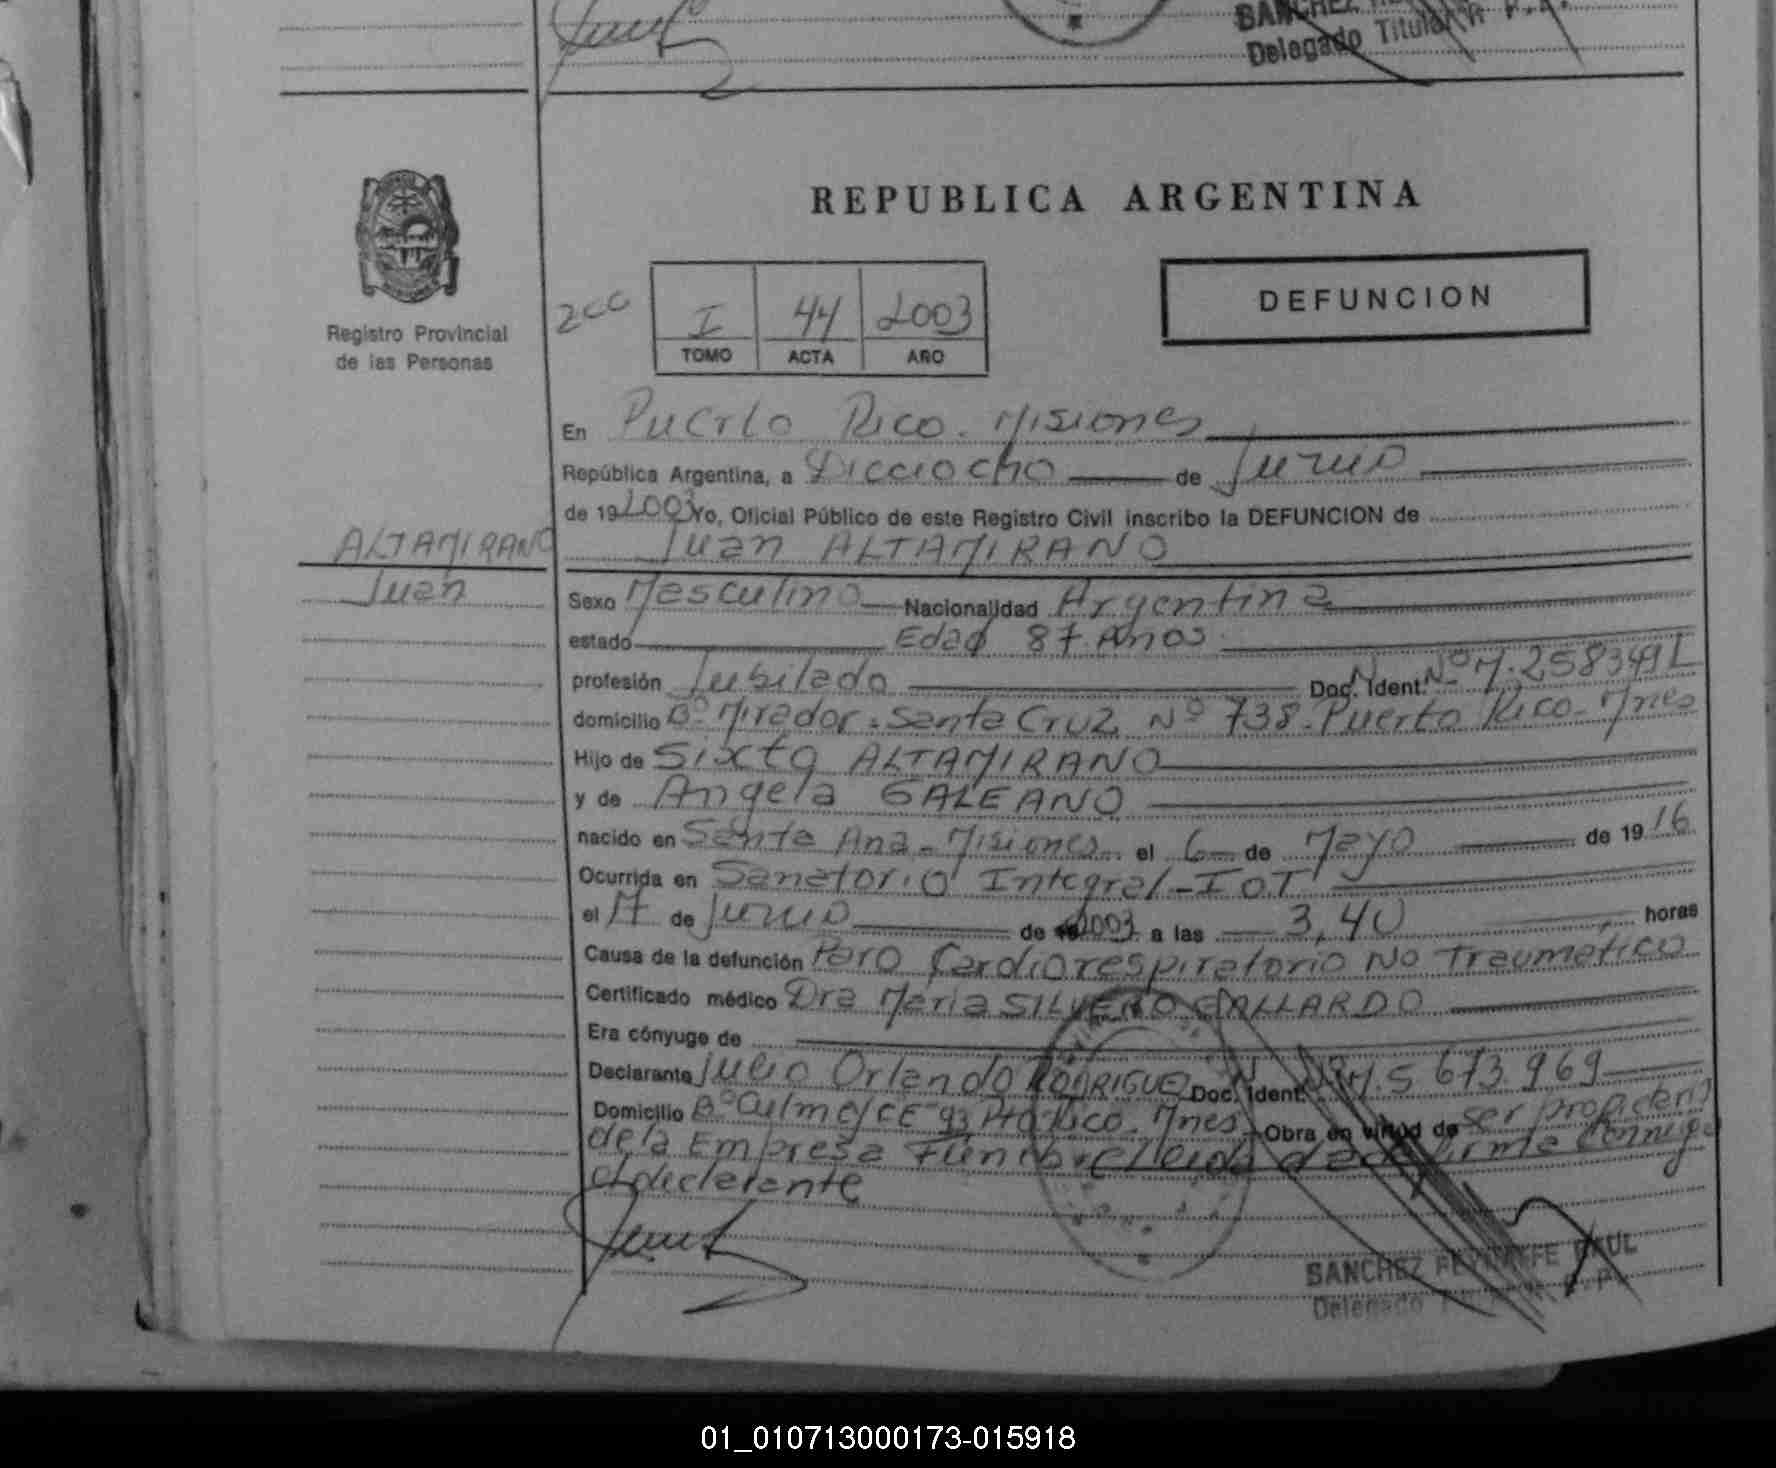 SANCHEZ
Delegado Titular
REPUBLICA ARGENTINA
Registro Provincial
de las Personas
DEFUNCION
I 44 2003
TOMO ACTA AÑO
En Puerto Rico. Misiones
República Argentina, a Dieciocho de Junio
de 19 2003 Yo, Oficial Público de este Registro Civil inscribo la DEFUNCION de
ALTAMIRANO
Juan
Juan ALTAMIRANO
Sexo Masculino Nacionalidad Argentina
estado Edad 87 Años
profesión Jubilado Doc. Ident. Nº M. 2583491
domicilio Bº Mirador - Santa Cruz Nº 738 - Puerto Rico - Mnes
Hijo de Sixto ALTAMIRANO
y de Angela GALEANO
nacido en Santa Ana - Misiones el 6 de Mayo de 19 16
Ocurrida en Sanatorio Integral - IOT
el 17 de Junio de 2003 a las 3,40 horas
Causa de la defunción Paro Cardiorespiratorio No Traumático
Certificado médico Dra Maria SILVERO GALLARDO
Era cónyuge de
Declarante Julio Orlando RODRIGUEZ Doc. Ident. M. 5 673.969
Domicilio Bº Culmey CE 93 Pto Rico. Mnes Obra en virtud de ser propietario
de la Empresa Funebre Leida firma conmigo
el declarante
SANCHEZ
Delegado
01_010713000173-015918